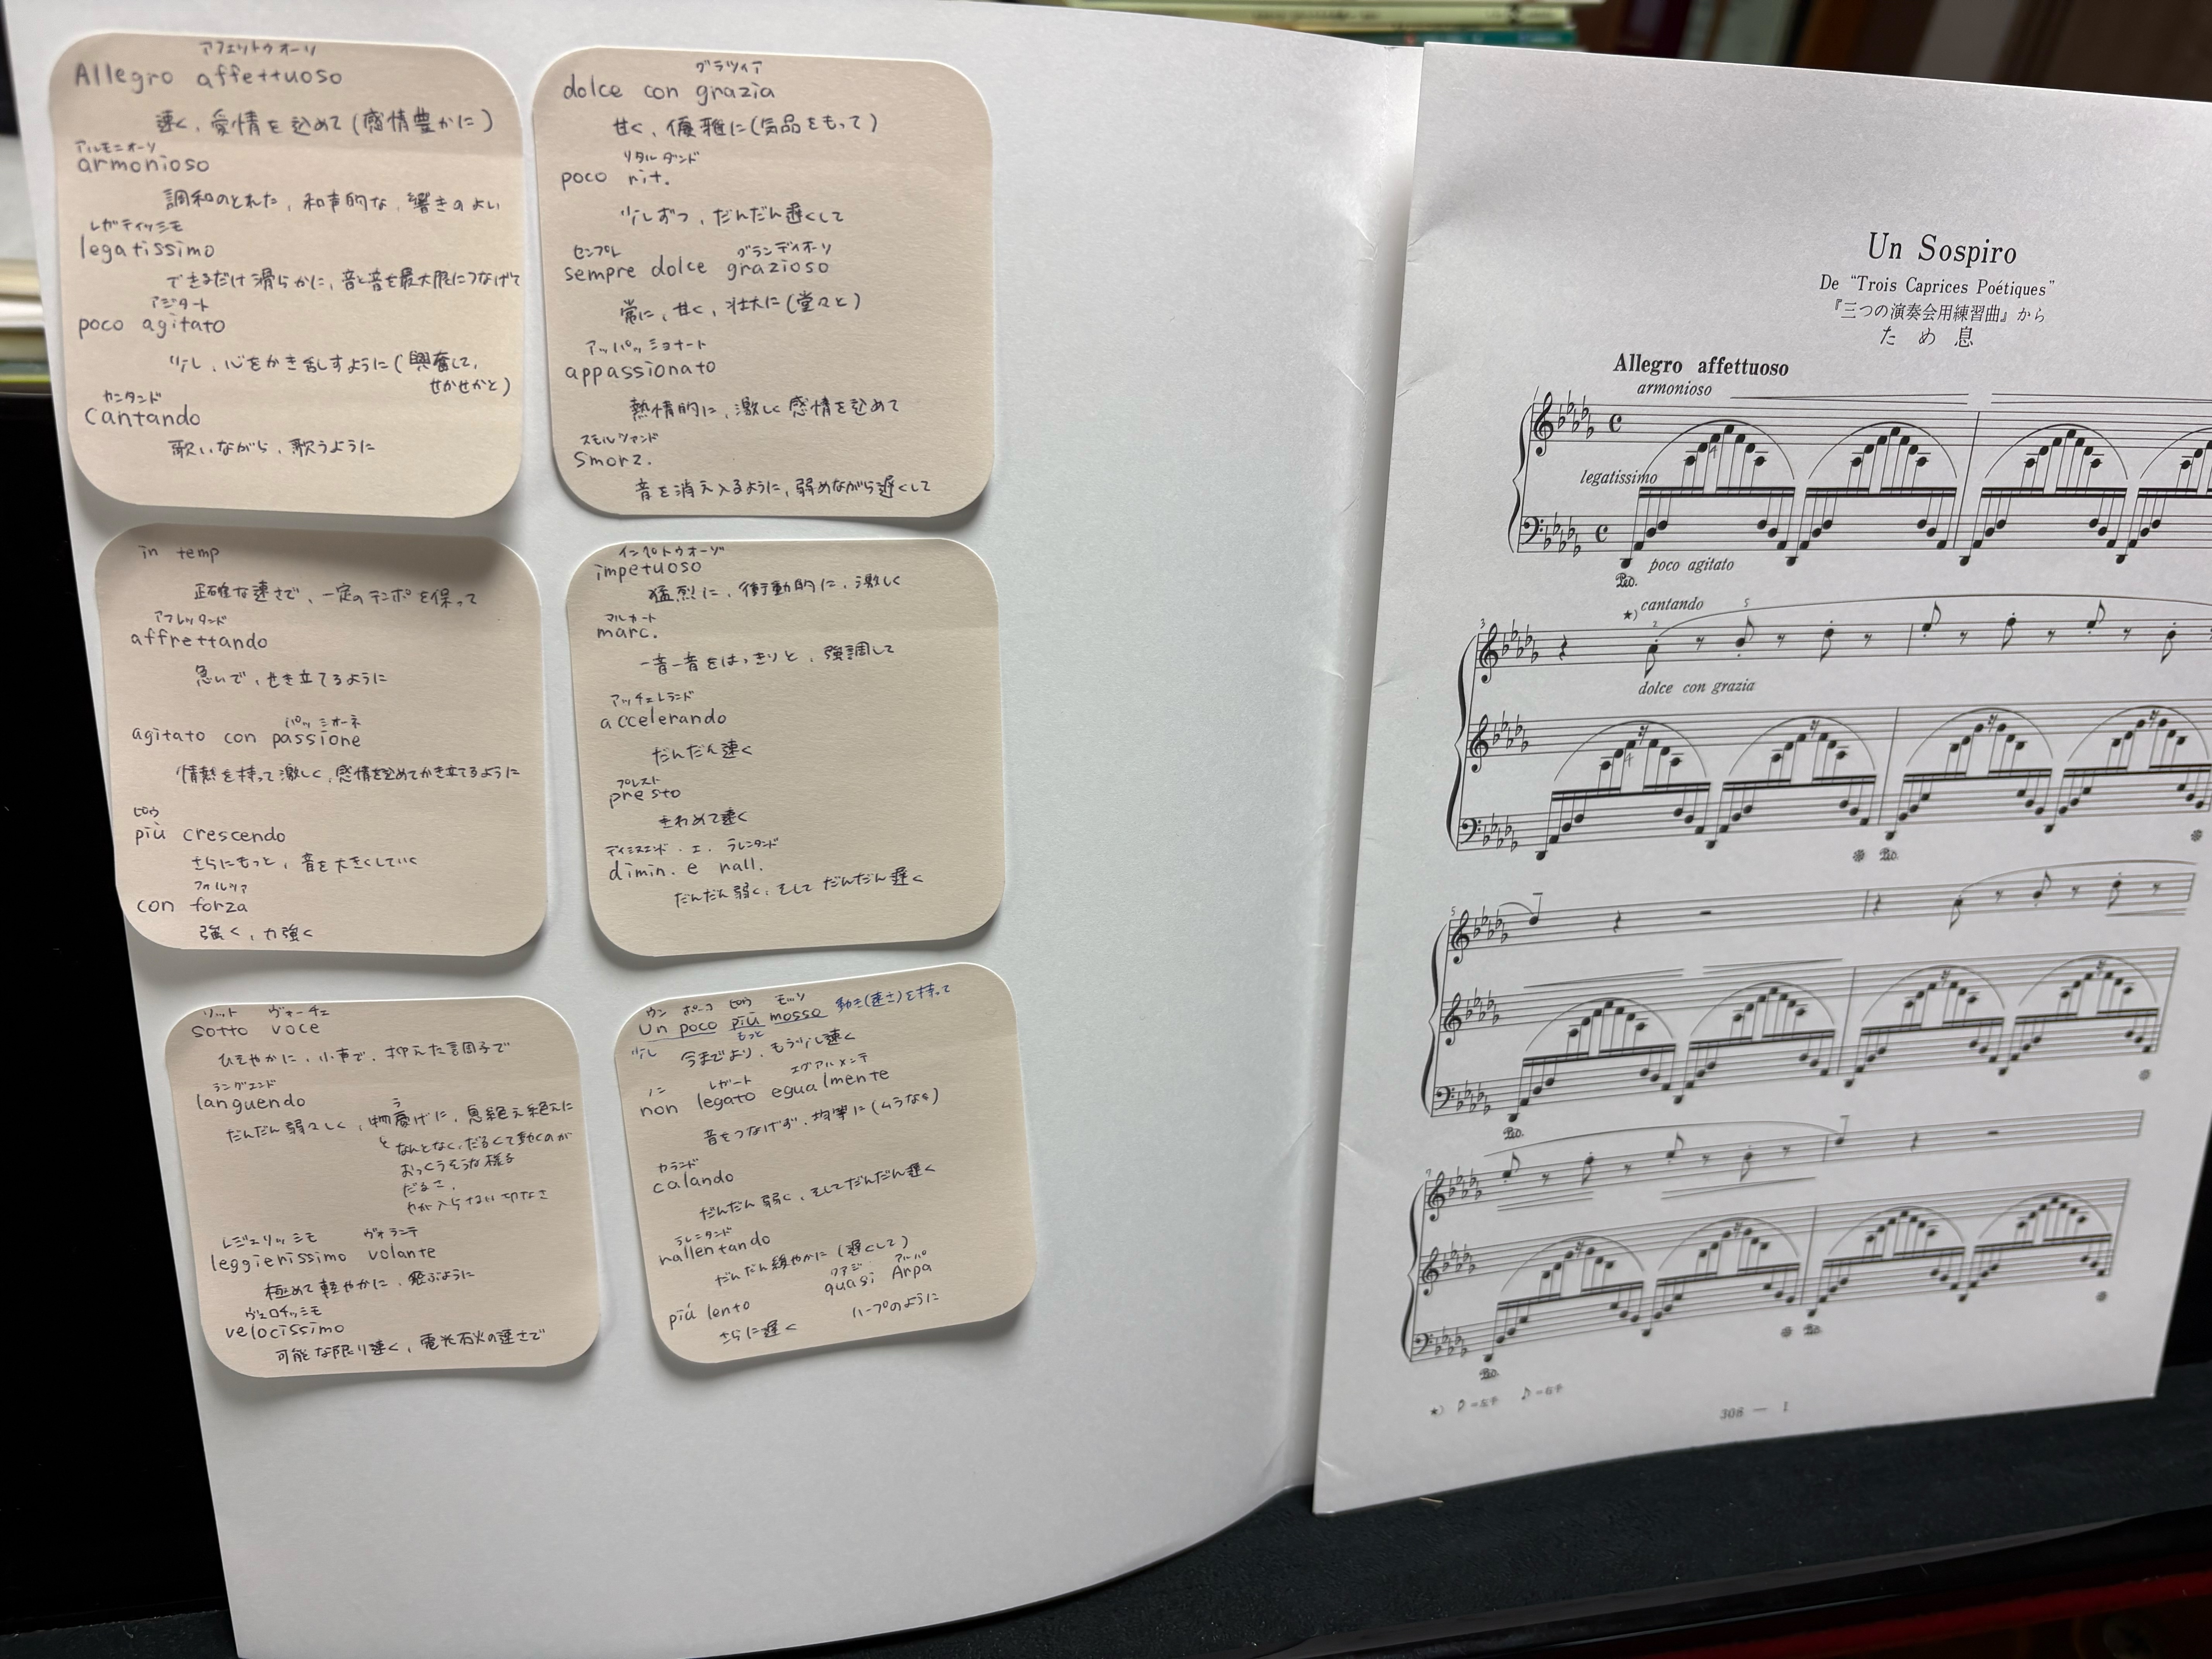 アフェットゥオーソ
Allegro affettuoso
速く、愛情を込めて(感情豊かに)
アルモニオーソ
armonioso
調和のとれた、和声的な、響きのよい
レガティッシモ
legatissimo
できるだけ滑らかに、音と音を最大限につなげて
アジタート
poco agitato
少し、心をかき乱すように(興奮して、
せかせかと)
カンタンド
cantando
歌いながら、歌うように
グラツィア
dolce con grazia
甘く、優雅に(気品をもって)
リタルダンド
poco rit.
少しずつ、だんだん遅くして
センプレ グランディオーソ
sempre dolce grazioso
常に、甘く、壮大に(堂々と)
アッパッショナート
appassionato
熱情的に、激しく感情を込めて
スモルツァンド
smorz.
音を消え入るように、弱めながら遅くして
in temp
正確な速さで、一定のテンポを保って
アフレッタンド
affrettando
急いで、せき立てるように
パッシオーネ
agitato con passione
情熱を持って激しく、感情を込めてかき立てるように
ピウ
più crescendo
さらにもっと、音を大きくしていく
フォルツァ
con forza
強く、力強く
インペトゥオーゾ
impetuoso
猛烈に、衝動的に、激しく
マルカート
marc.
一音一音をはっきりと、強調して
アッチェレランド
accelerando
だんだん速く
プレスト
presto
きわめて速く
ディミヌエンド・エ・ラレンタンド
dimin. e rall.
だんだん弱く、そしてだんだん遅く
ソット ヴォーチェ
sotto voce
ひそやかに、小声で、抑えた調子で
ラングエンド
languendo
う
だんだん弱々しく、物憂げに、息絶え絶えに
なんとなく、だるくて動くのが
おっくうそうな様子
だるさ、
力が入らない切なさ
レジェリッシモ ヴォランテ
leggierissimo volante
極めて軽やかに、飛ぶように
ヴェロチッシモ
velocissimo
可能な限り速く、電光石火の速さで
ウン ポーコ ピウ モッソ 動き(速さ)を持って
Un poco più mosso
少し もっと
今までより、もう少し速く
ノン レガート エグアルメンテ
non legato egualmente
音をつなげず、均等に(ムラなく)
カランド
calando
だんだん弱く、そしてだんだん遅く
ラレンタンド
rallentando
だんだん緩やかに(遅くして)
クアジ アルパ
quasi Arpa
più lento
ハープのように
さらに遅く
Un Sospiro
De "Trois Caprices Poétiques"
『三つの演奏会用練習曲』から
ため息
Allegro affettuoso
armonioso
legatissimo
4
poco agitato
Ped.
3
★) cantando
2 5
dolce con grazia
4
Ped.
5
Ped.
7
Ped.
Ped.
★) =左手 =右手
308 — 1